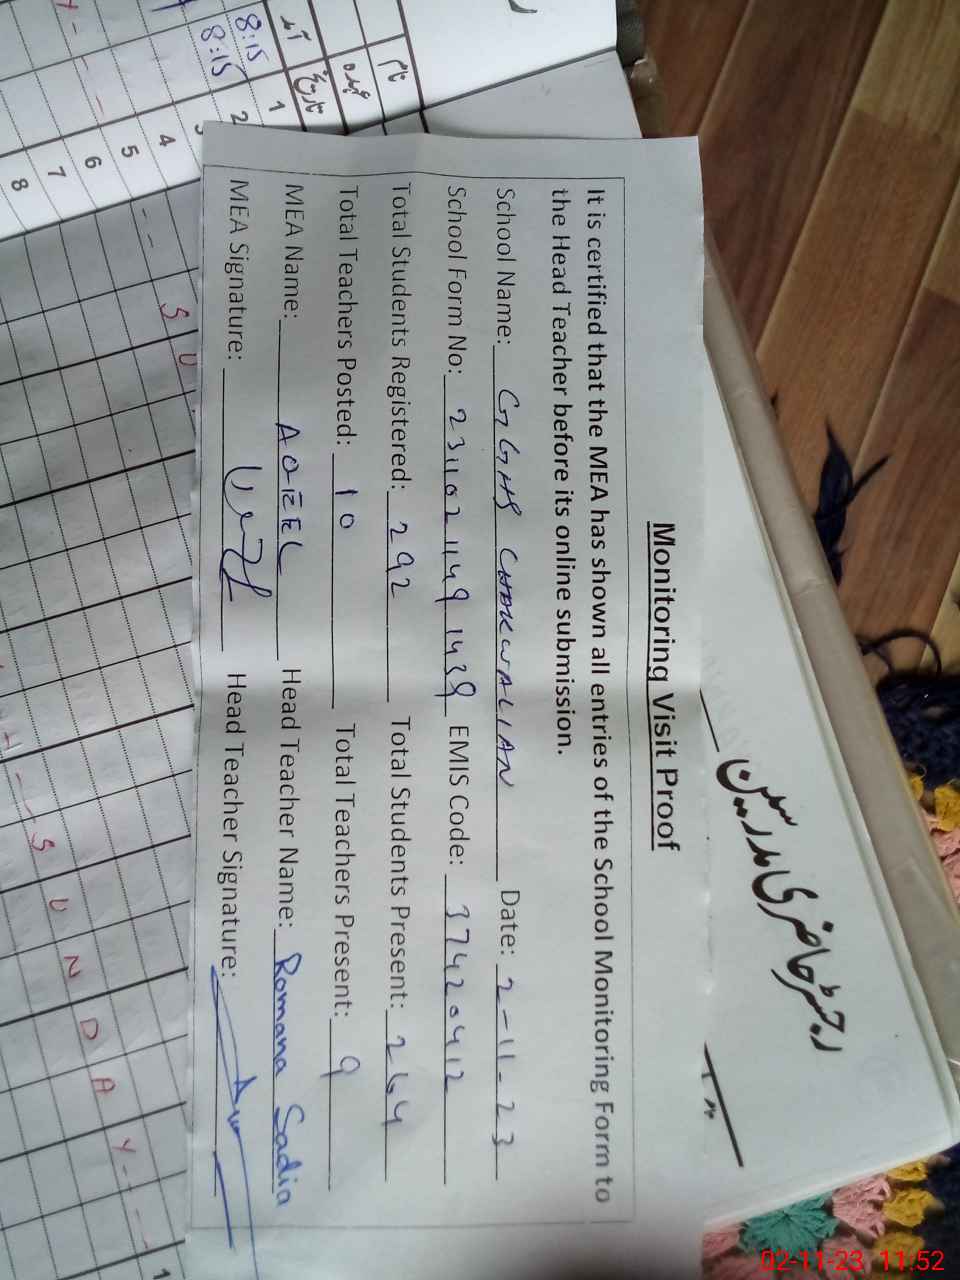 Monitoring Visit Proof
It is certified that the MEA has shown all entries of the School Monitoring Form to
the Head Teacher before its online submission.
School Name: GGHS CHAKWALIAN Date: 2-11-23
School Form No: 23110211491439 EMIS Code: 37420412
Total Students Registered: 292 Total Students Present: 264
Total Teachers Posted: 10 Total Teachers Present: 9
MEA Name: Head Teacher Name: Romana Sadia
MEA Signature: Head Teacher Signature:
رجسٹر حاضری مدرسین
نام
عہدہ
تاریخ
آمد
8:15
8:15
1
2
3
4
5
6
7
8
S U
S U N D A Y
02-11-23 11:52